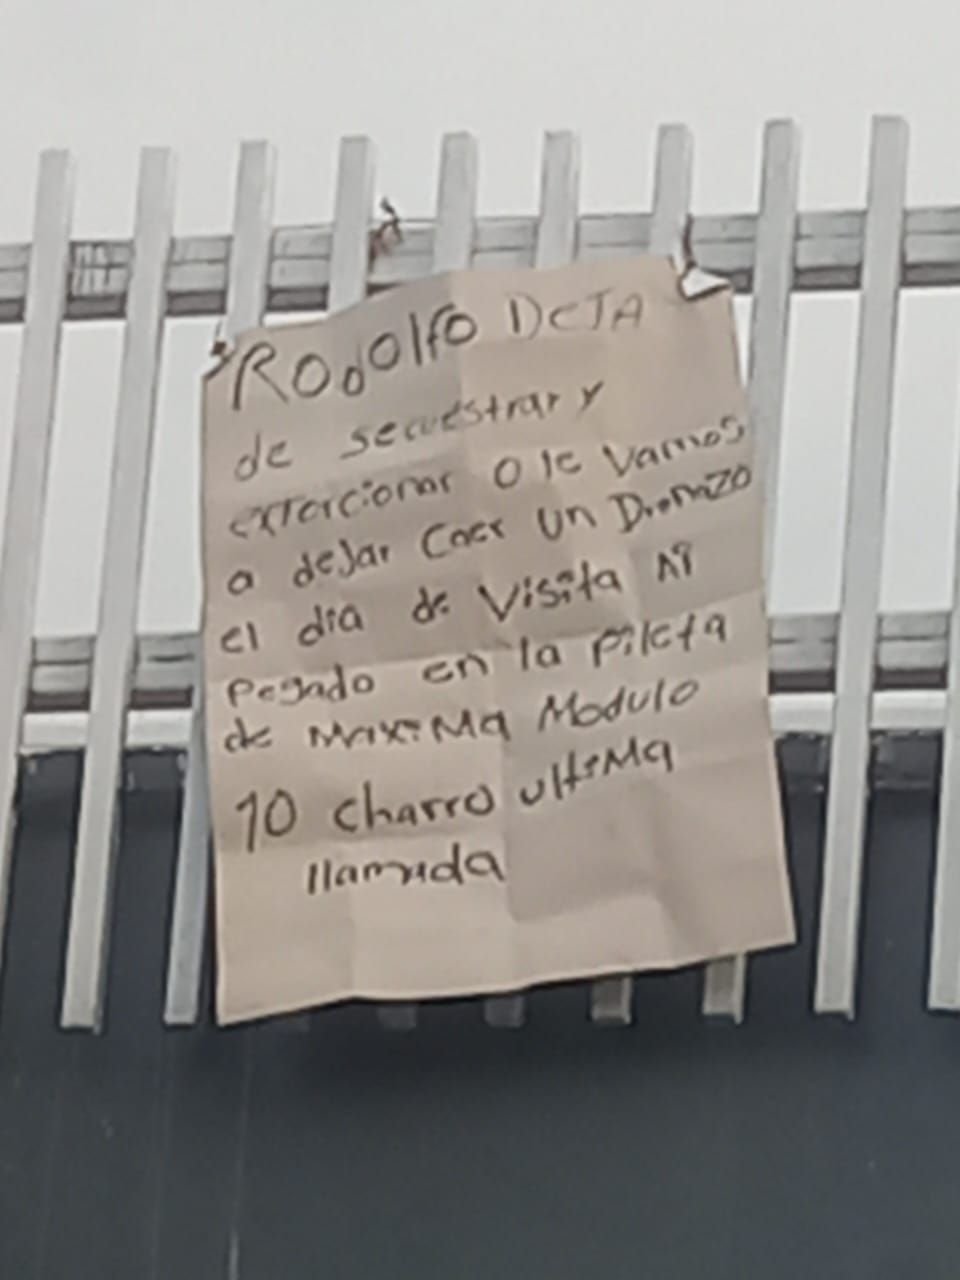 Rodolfo DeJA
de secuestrar y
exTorcionar o le vamos
a dejar Caer un Dronazo
el dia de Visita Ai
Pegado en la Pileta
de MaxiMa Modulo
10 charro ultiMa
llamada